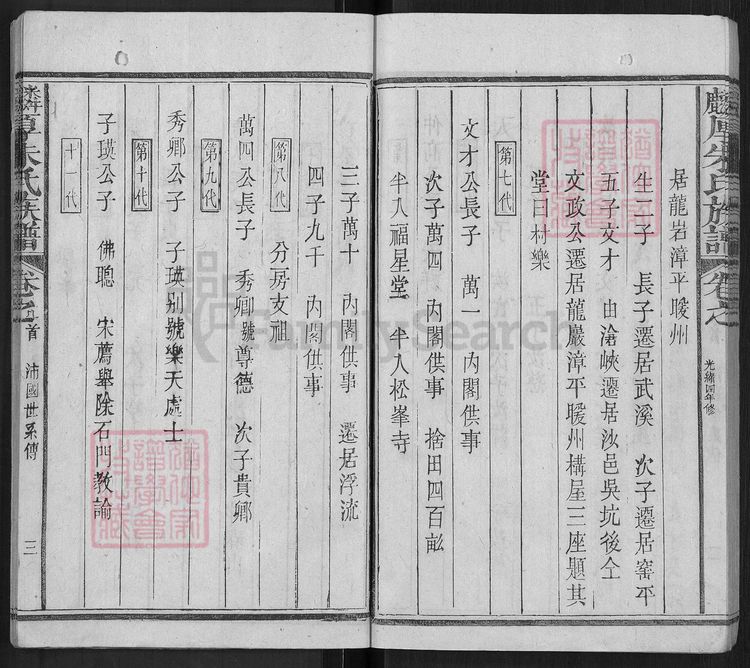 麟厚朱氏族譜 卷之
光緒四年修
居龍岩漳平暖州
生二子 長子遷居武溪 次子遷居窑平
五子文才 由滄峽遷居汝邑吳坑後仝
文政公遷居龍巖漳平暖州構屋三座題其
堂曰村樂
第七代
文才公長子 萬一 內閣供事
次子萬四 內閣供事 捨田四百畝
半入福星堂 半入松峯寺
三子萬十 內閣供事 遷居浮流
四子九千 內閣供事
第八代 分房支祖
萬四公長子 秀卿號尊德 次子貴卿
第九代
秀卿公子 子瑛別號樂天處士
第十代
子瑛公子 佛聰 宋薦舉除石門教諭
十一代
朱氏族譜 卷之 首 沛國世系傳 三
FamilySearch